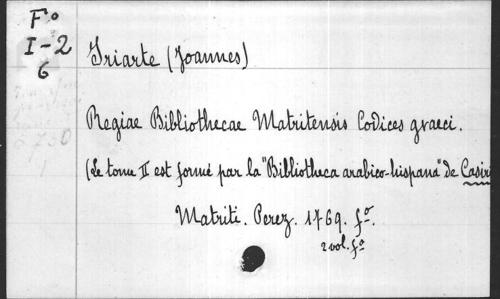 Fo
I-2
6
Iriarte (Joannes)
Regiae Bibliothecae Matritensis Codices graeci.
(Le tome II est formé par la "Bibliotheca arabico-hispana" de Casiri
Matriti. Perez. 1769. fo.
2 vol. fo